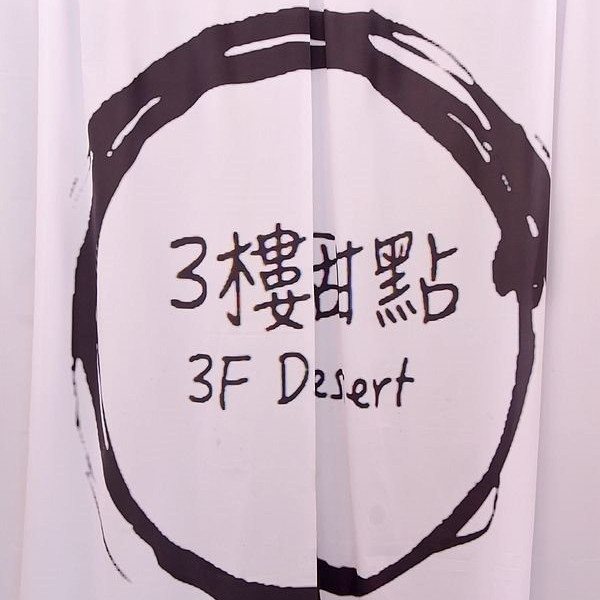 3樓甜點
3F Desert